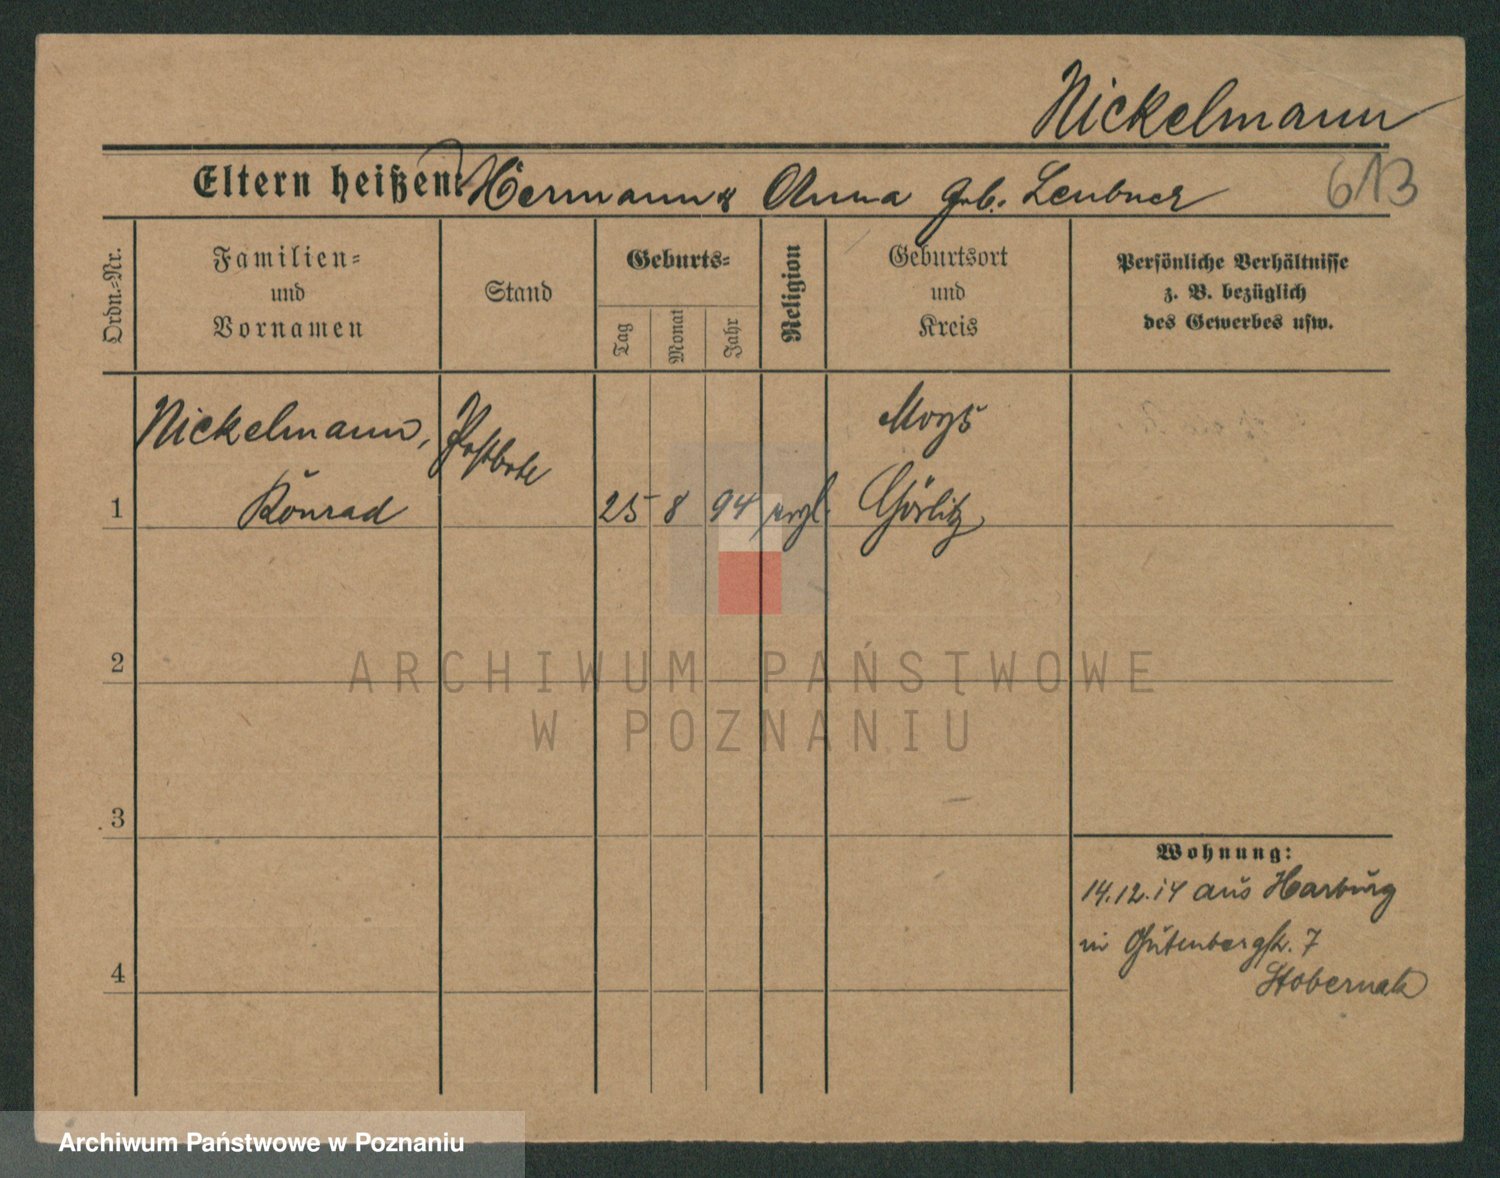 Nickelmann
Eltern heißen: Hermann & Anna geb. Leubner
613
Ordn.-Nr.
Familien-
und
Vornamen
Stand
Geburts-
Tag
Monat
Jahr
Religion
Geburtsort
und
Kreis
Persönliche Verhältnisse
z. B. bezüglich
des Gewerbes usw.
Nickelmann,
Konrad
Postbote
1
25
8
94
evgl.
Moys
Görlitz
2
3
4
Wohnung:
14.12.14 aus Harburg
in Gutenbergstr. 7
ARCHIWUM PAŃSTWOWE
W POZNANIU
Archiwum Państwowe w Poznaniu